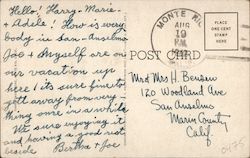 Hello! Harry-Marie-
& Adele! How is every
body in San-Anselmo
Joe & Myself are on
our vacation up
here & its sure fine to
get away from every-
thing once in a while
We sure enjoying it
and having a good rest
beside Bertha & Joe
MONTE RIO
AUG
19
PM
POST CARD
PLACE
ONE CENT
STAMP
HERE
Mr and Mrs H. Bensen
120 Woodland Ave
San Anselmo
Marin County
Calif.